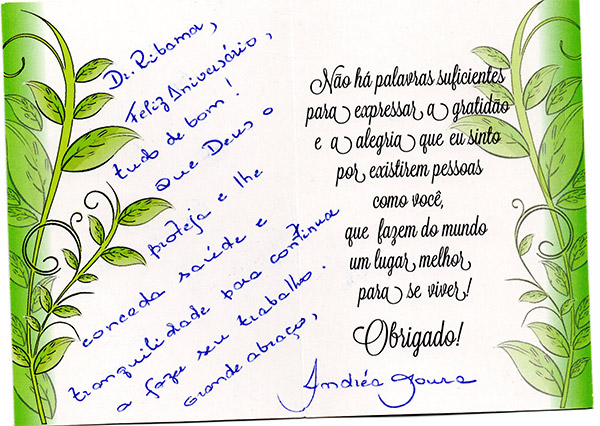 Dr. Ribamar,
Feliz Aniversário,
tudo de bom!
Que Deus o
proteja e lhe
conceda saúde e
tranquilidade para continuar
a fazer seu trabalho.
Grande abraço,
Não há palavras suficientes
para expressar a gratidão
e a alegria que eu sinto
por existirem pessoas
como você,
que fazem do mundo
um lugar melhor
para se viver!
Obrigado!
Andréa Moura